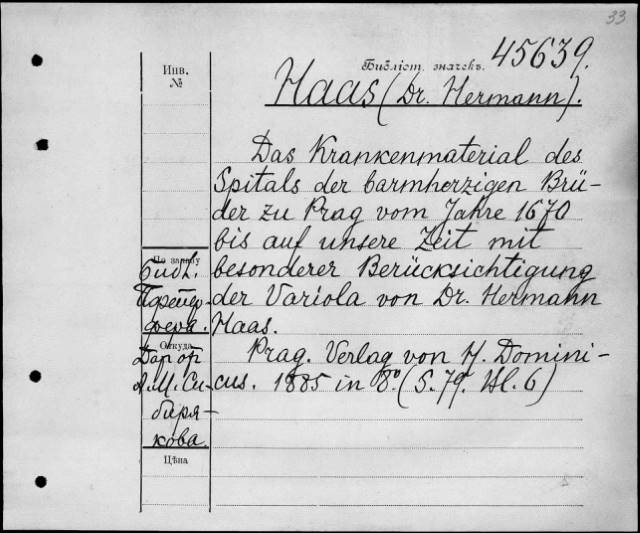 33
Библіот. значекъ. 45639.
Инв.
№
Haas (Dr. Hermann).
Das Krankenmaterial des
Spitals der barmherzigen Brü-
der zu Prag vom Jahre 1670
bis auf unsere Zeit mit
besonderer Berücksichtigung
der Variola von Dr. Hermann
Haas.
Prag. Verlag von H. Domini-
cus. 1885 in 8º (S. 79. Bl. 6)
По запасу
Библ.
Пфейф-
фера.
Откуда
Дар от
А.М. Си-
биря-
кова.
Цѣна